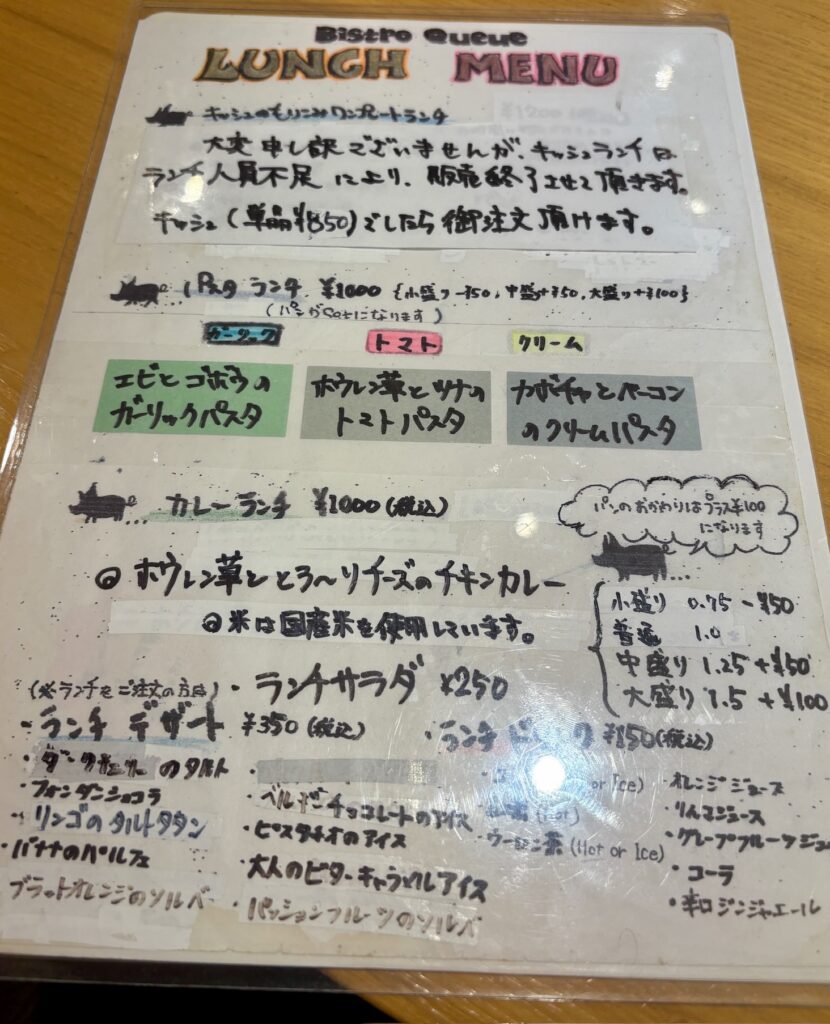 Bistro Queue
LUNCH MENU
キッシュのもりこみワンプレートランチ
大変申し訳でございませんが、キッシュランチは
ランチ人員不足により、販売終了させて頂きます。
キッシュ(単品¥850)でしたら御注文頂けます。
パスタランチ ¥1000 {小盛り-¥50, 中盛+¥50, 大盛り+¥100}
(パンがSetになります)
ガーリック トマト クリーム
エビとゴボウの
ガーリックパスタ
ホウレン草とツナの
トマトパスタ
カボチャとベーコン
のクリームパスタ
カレーランチ ¥1000(税込)
パンのおかわりはプラス¥100
になります
◎ホウレン草ととろ〜りチーズのチキンカレー
◎米は国産米を使用しています。
小盛り 0.75 -¥50
普通 1.0
中盛り 1.25 +¥50
大盛り 1.5 +¥100
(※ランチをご注文の方は)・ランチサラダ ¥250
・ランチ デザート ¥350(税込)
・ダークチェリーのタルト
・フォンダンショコラ
・リンゴのタルトタタン
・バナナのパルフェ
ブラッドオレンジのソルベ
・ベルギーチョコレートのアイス
・ピスタチオのアイス
・大人のビターキャラメルアイス
・パッションフルーツのソルベ
・ランチ ¥150(税込)
or Ice)
・ウーロン茶(Hot or Ice)
・オレンジジュース
・りんごジュース
・グレープフルーツジュ
・コーラ
・辛口ジンジャエール